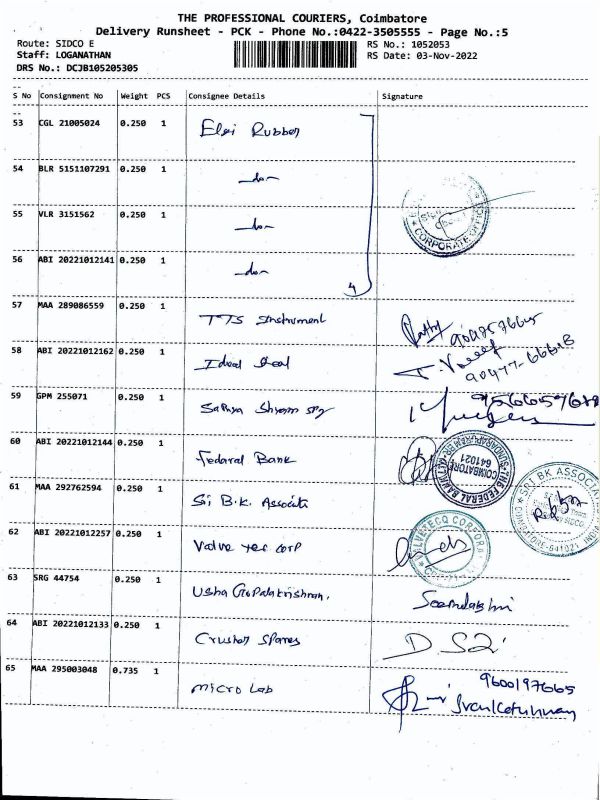 THE PROFESSIONAL COURIERS, Coimbatore
Delivery Runsheet - PCK - Phone No.:0422-3505555 - Page No.:5
Route: SIDCO E RS No.: 1052053
Staff: LOGANATHAN RS Date: 03-Nov-2022
DRS No.: DCJB105205305
S No Consignment No Weight PCS Consignee Details Signature
53 CGL 21005024 0.250 1 Elgi Rubber
54 BLR 5151107291 0.250 1 -do-
55 VLR 3151562 0.250 1 -do-
CORPORATE OFFICE
56 ABI 20221012141 0.250 1 -do-
4
57 MAA 289086559 0.250 1 TTS Instrument
58 ABI 20221012162 0.250 1 Ideal Seal
90477-66618
59 GPM 255071 0.250 1 Sathya Shyam
60 ABI 20221012144 0.250 1 Fedaral Bank
THE FEDERAL BANK
COIMBATORE
641021
61 MAA 292762594 0.250 1 Sri B.K. Associate
SRI BK ASSOCIA
COIMBATORE-641021
62 ABI 20221012257 0.250 1 Valve tec corp
VALVETECQ CORPORA
63 SRG 44754 0.250 1 Usha Gopalakrishnan.
64 ABI 20221012133 0.250 1 Crusher Spares
65 MAA 295003048 0.735 1 Micro Lab
9600197665